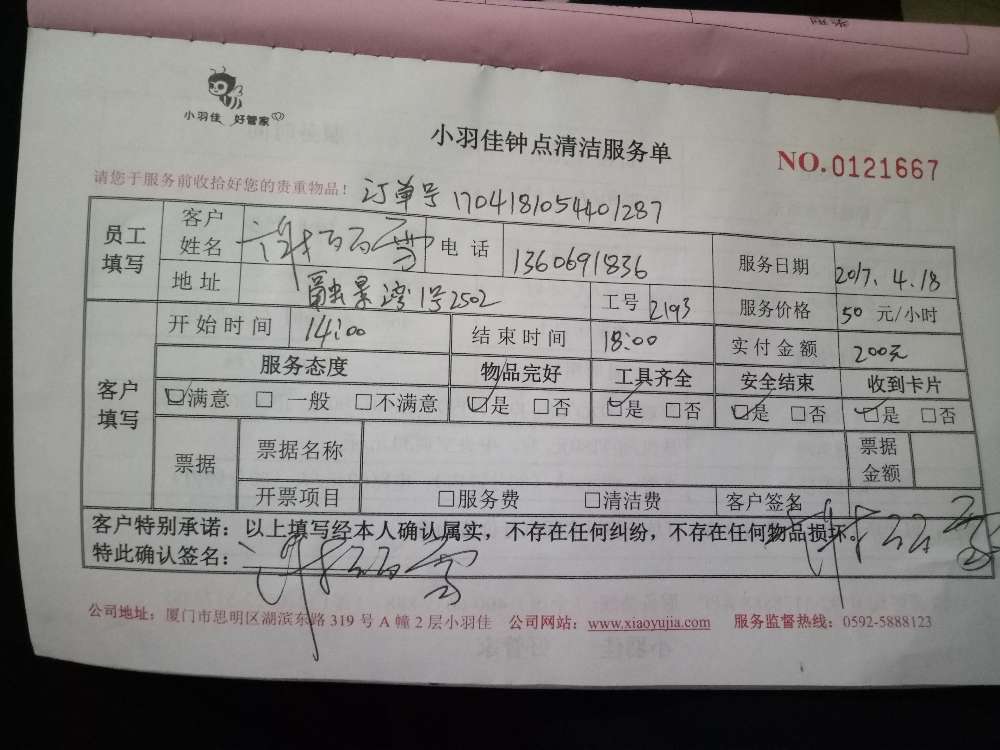 小羽佳 好管家
小羽佳钟点清洁服务单
NO.0121667
请您于服务前收拾好您的贵重物品！ 订单号 1704181054401287
员工填写 客户姓名 电话 1360691836 服务日期 2017.4.18
地址 融景湾1号2502 工号 2193 服务价格 50 元/小时
客户填写 开始时间 14:00 结束时间 18:00 实付金额 200元
服务态度 物品完好 工具齐全 安全结束 收到卡片
☑满意 □一般 □不满意 ☑是 □否 ☑是 □否 ☑是 □否 ☑是 □否
票据 票据名称 票据金额
开票项目 □服务费 □清洁费 客户签名
客户特别承诺：以上填写经本人确认属实，不存在任何纠纷，不存在任何物品损坏。
特此确认签名：
公司地址：厦门市思明区湖滨东路 319 号 A 幢 2 层小羽佳 公司网站：www.xiaoyujia.com 服务监督热线：0592-5888123